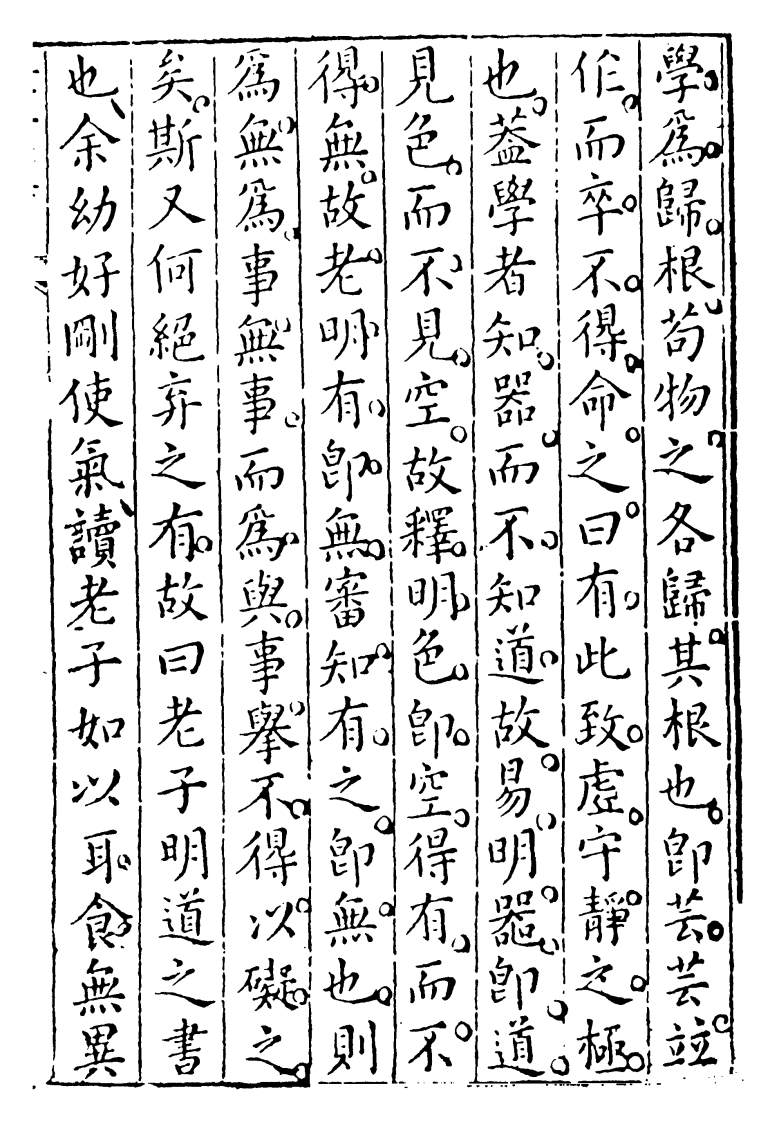 學爲歸根苟物之各歸其根也卽芸芸竝
作而卒不得命之曰有此致虛守靜之極
也蓋學者知器而不知道故易明器卽道
見色而不見空故釋明色卽空得有而不
得無故老明有卽無審知有之卽無也則
爲無爲事無事而爲與事舉不得以礙之
矣斯又何絕弃之有故曰老子明道之書
也余幼好剛使氣讀老子如以耳食無異